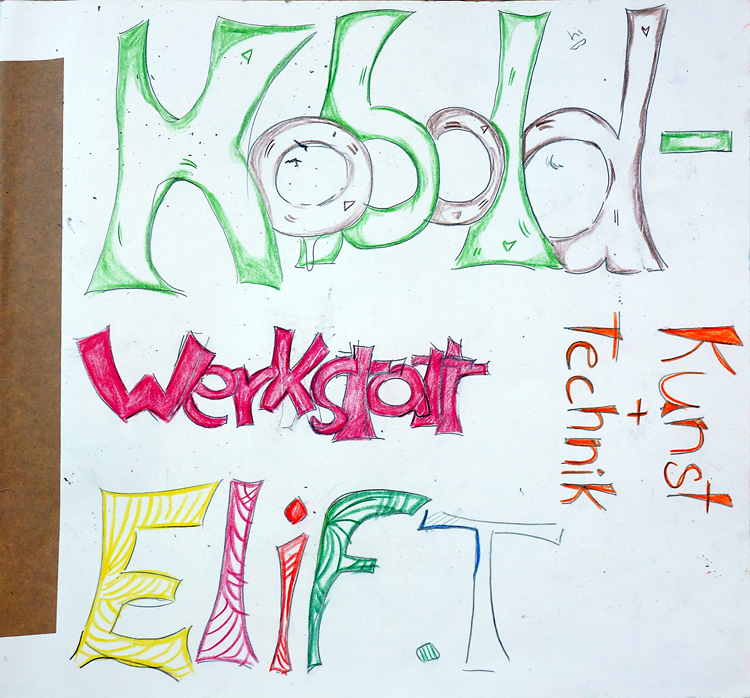 Kobold-
Werkstatt
Elif.T
Kunst
+
Technik
hi